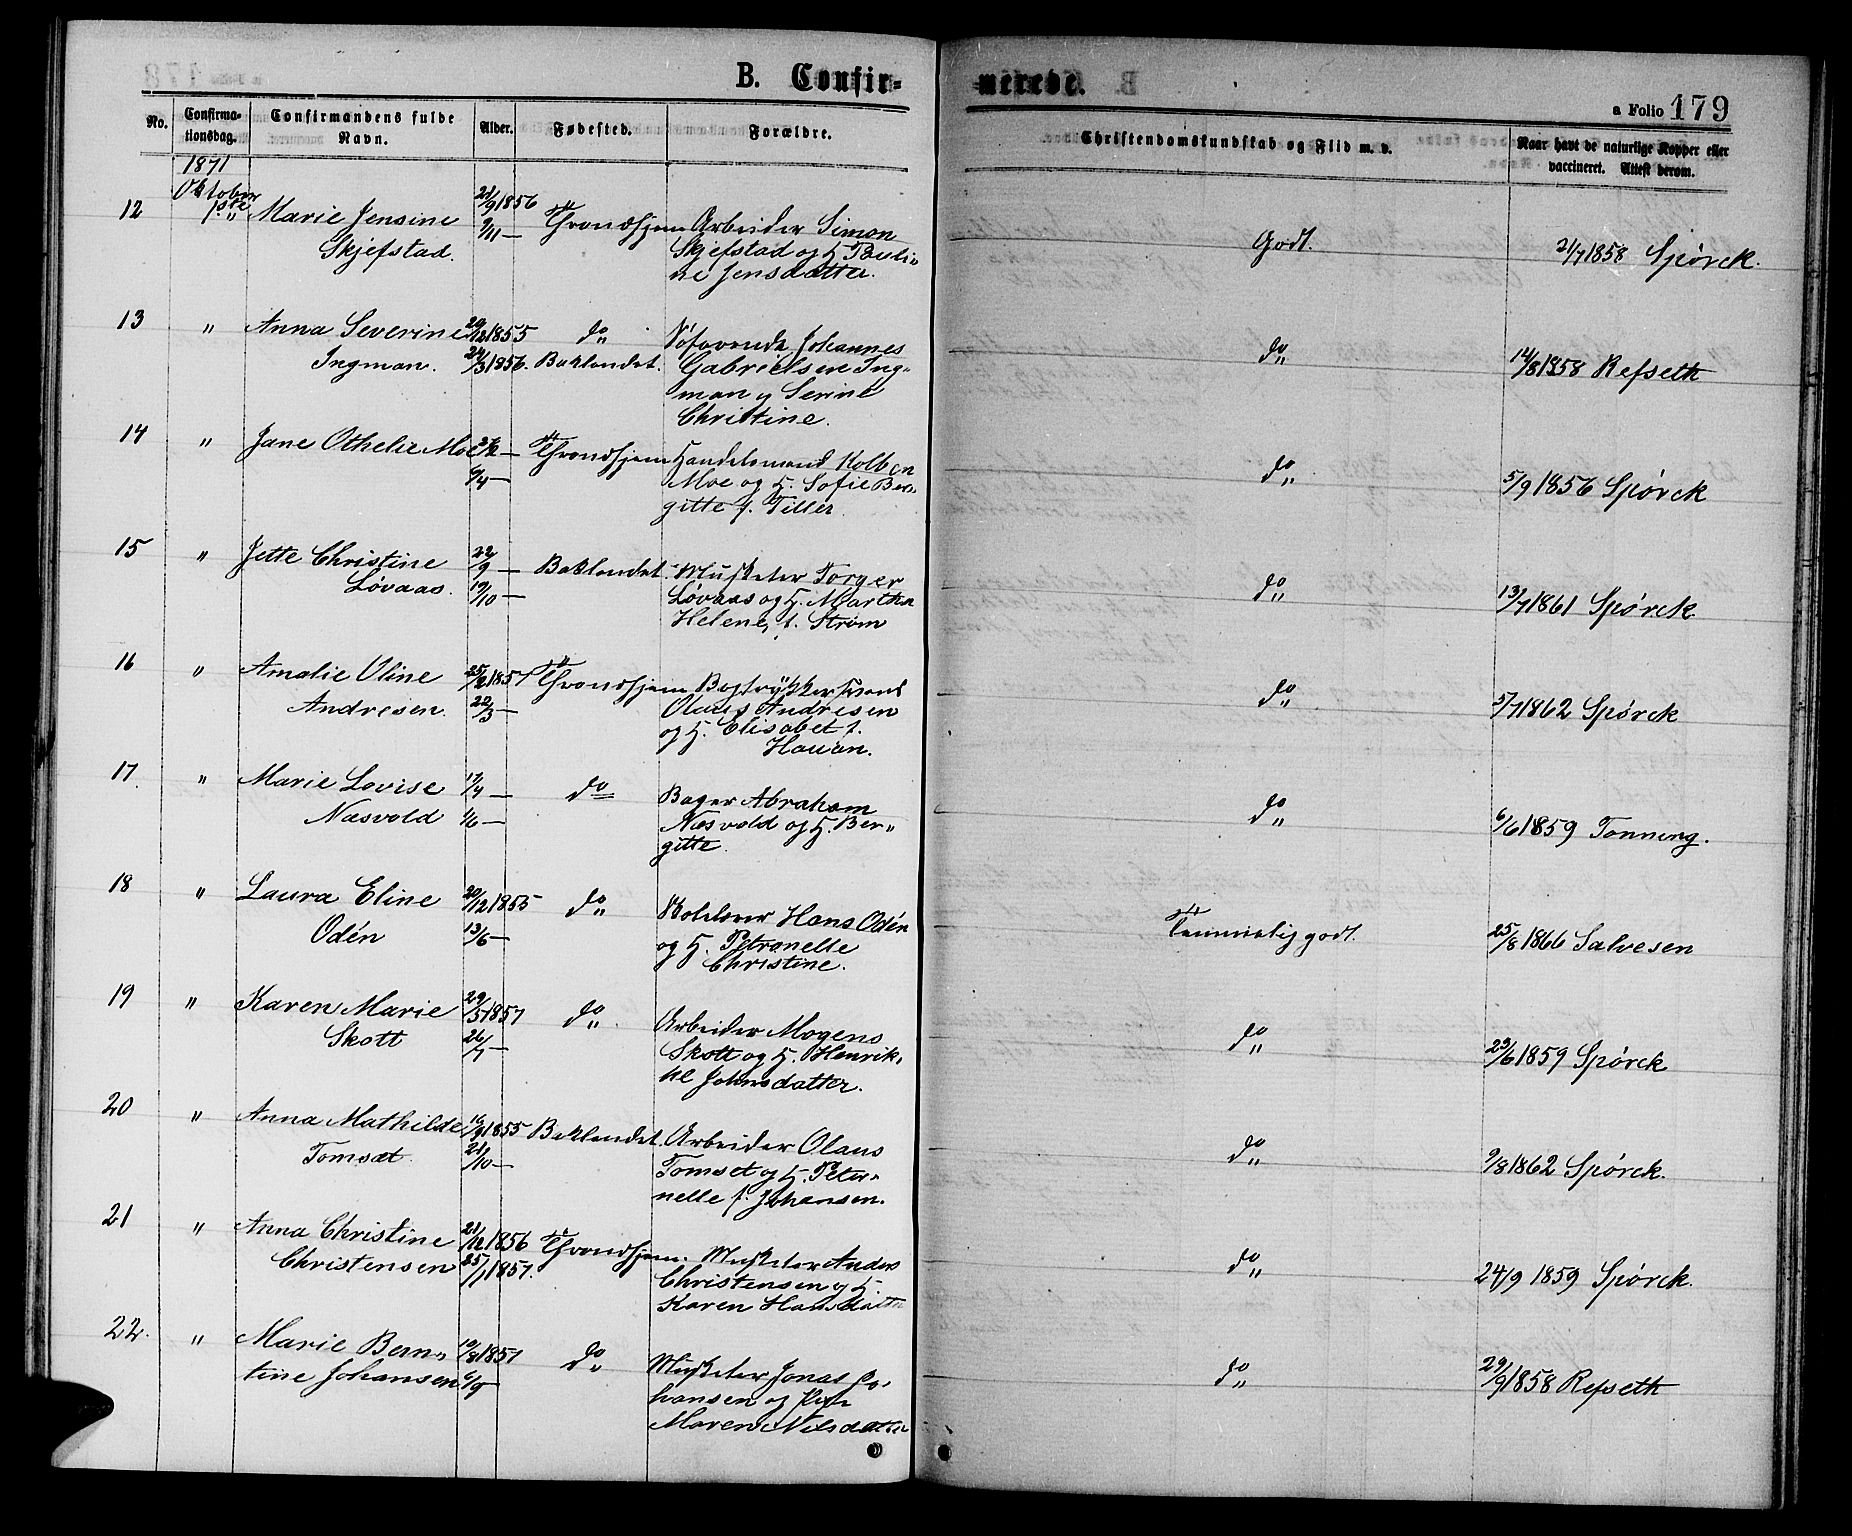 B. Confir-
No.
Confirma-
tionsdag.
Confirmandens fulde
Navn.
Alder.
Fødested.
Forældre.
1871
Oktober
12 1ste Marie Jensine 21/9 1856 Throndhjem Arbeider Simon
Skjefstad. 9/11 — Skjefstad og H. Pauli-
ne Jensdatter.
13 " Anna Severine 20/12 1855 do Johannes
Ingman. 24/3 1856. Baklandet. Gabrielsen Ing-
man og Serine
Christine.
14 " Jane Othelie Moe — Throndhjem Handelsmand Kolben
6/4 — Moe og H. Sofie Ber-
gitte f. Tiller
15 " Jette Christine 22/9 — Baklandet. Musketer Torger
Løvaas. 19/10 — Løvaas og H. Martha
Helene, f. Strøm
16 " Amalie Uline 25/2 1857 Throndhjem Bogtrykkersvend
Andresen. 22/3 — Olaus Andresen
og H. Elisabet f.
Hauan.
17. " Marie Lovise 17/4 — do Bager Abraham
Næsvold 1/6 — Næsvold og H. Ber-
gitte.
18 " Laura Eline 20/12 1855 do Hans Odén
Odén 13/6 — og H. Petronelle
Christine.
19 " Karen Marie 29/5 1857 do. Arbeider Mogens
Skott 26/7 — Skott og H. Henrik-
ke Johnsdatter.
20 " Anna Mathilde 16/9 1855 Baklandet. Arbeider Olaus
Tomsæt. 21/10 — Tomset og H. Peter-
nelle f. Johansen.
21 " Anna Christine 21/12 1856 Throndhjem. Musketer Anders
Christensen 25/1 1857. Christensen og H.
Karen Hansdatter
22. " Marie Bern- 10/8 1857 do Musketer Jonas Jo-
tine Johansen 6/9 — hansen og
Maren Nilsdatter
merede.
a Folio 179
Christendomskundskab og Flid m. v.
Naar havt de naturlige Kopper eller
vaccineret. Attest derom.
Godt. 21/7 1858 Spørck.
do 14/8 1858 Refseth
do 5/9 1856 Spørck
do 13/7 1861 Spørck
do 5/7 1862 Spørck
do 6/6 1859 Tonning.
Temmelig godt. 25/8 1866 Salvesen
do 23/6 1859 Spørck
do 9/8 1862 Spørck.
do 24/9 1859 Spørck.
do 29/9 1858 Refseth